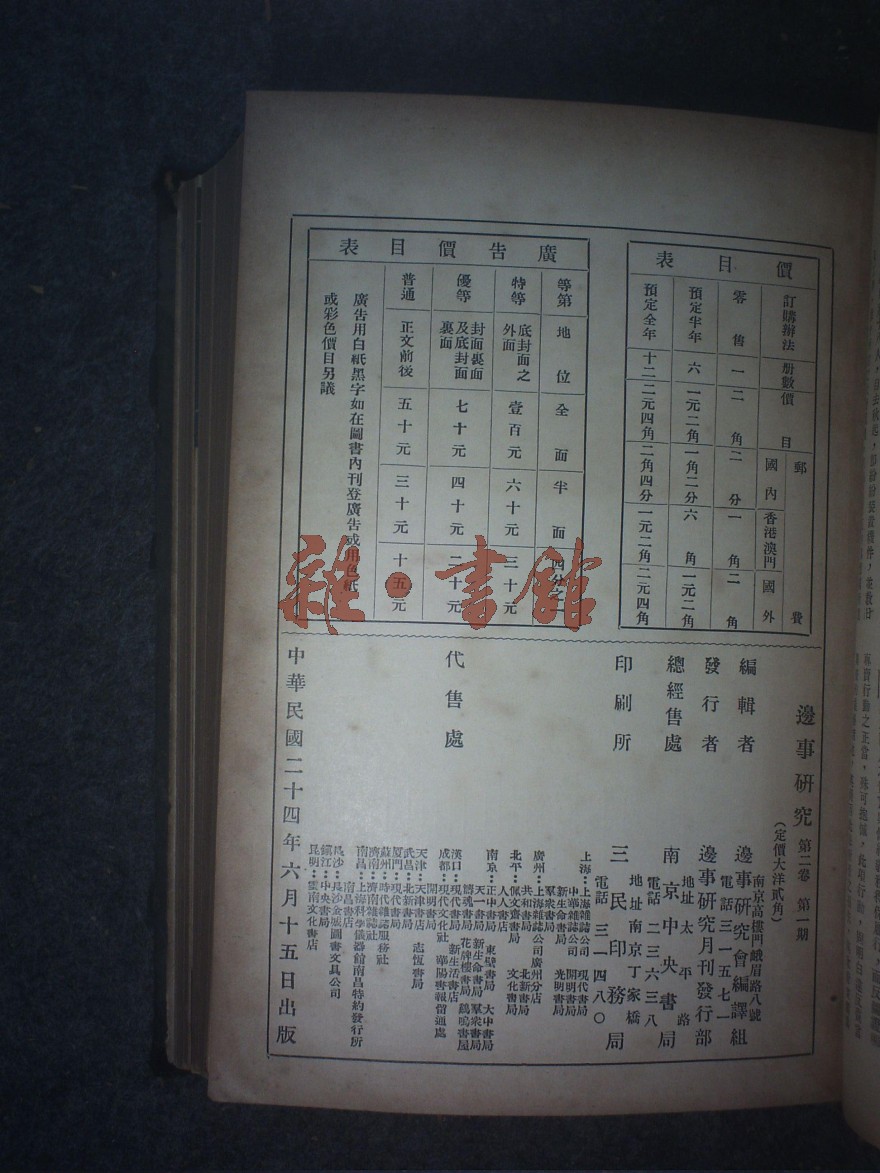 價目表
訂購辦法 册數 價目 郵費 國內 香港澳門 國外
零售 一 二角 二分 一角 二角
預定半年 六 一元二角 一角二分 六角 一元二角
預定全年 十二 二元四角 二角四分 一元二角 二元四角
廣告價目表
等第 地位 全面 半面 四分之一
特等 底封面之外面 壹百元 六十元 三十元
優等 封面裏面及底封面裏面 七十元 四十元 二十元
普通 正文前後 五十元 三十元 十五元
廣告用白紙黑字如在圖書內刊登廣告或用色紙
或彩色價目另議
邊事研究 第二卷 第一期
(定價大洋貳角)
編輯者 邊事研究會編譯組
南京高樓門峨眉路八號
電話三一五七一
發行者 邊事研究月刊發行部
地址太平路
總經售處 南京中央書局
電話二三六三八
地址南京丁家橋
印刷所 三民印務局
電話三一四八〇
代售處
上海：上海雜誌公司 現代書局
中華雜誌公司 開明書局
新生命書局 光明書局
羣衆書局
廣州：上海雜誌公司廣州分店
共和書局 北新書局
北平：佩文齋書局 文化書局
人人書店
南京：正中書局 東壁書局 大中書局
天一書局 新生命書局 羣衆書局
鑄魂書局 花牌樓書局 鷄鳴書屋
漢口：現代書局 新生活書店
成都：現代文化社 華陽書報僧通處
開明書局
天津：天津書店 志恆書局
武昌：北新書局
廈門：現代書局
蘇州：時代雜誌服務社
濟南：濟南雜誌社
南昌：上海科學儀器館南昌特約發行所
南昌書店
長沙：長沙金城圖書文具公司
鎮江：中央書局
昆明：雲南文化書店
中華民國二十四年六月十五日出版
雜·書館